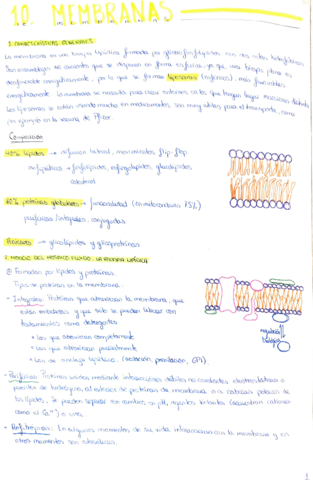 10. MEMBRANAS
1. CARACTERÍSTICAS GENERALES
La membrana es una bicapa lipídica formada por glicerofosfolípidos con dos colas hidrofóbicas.
Son ensamblajes no covalentes que se disponen en forma esférica, ya que una bicapa plana es
desfavorable energéticamente, por lo que se forman liposomas (esféricos), más favorables
energéticamente. La membrana es necesaria para crear entornos en los que tengan lugar reacciones
Los liposomas se están usando mucho en medicamentos, son muy útiles para el transporte, como
por ejemplo en la vacuna de Pfizer.
Composición
40% lípidos → difusión lateral, movimientos flip-flop
anfipáticos → fosfolípidos, esfingolípidos, glucolípidos
colesterol
60% proteínas globulares → funcionalidad (en mitocondrias 75%)
periféricas/integrales, conjugadas
Azúcares → glucolípidos y glicoproteínas
2. MODELO DEL MOSAICO FLUIDO: LA BICAPA LIPÍDICA
Formadas por lípidos y proteínas.
Tipos de proteínas en la membrana:
- Integrales: Proteínas que atraviesan la membrana, que
están embebidas y que solo se pueden liberar con
tratamientos como detergentes
• Las que atraviesan completamente
• Las que atraviesan parcialmente
• Las de anclaje lipídico (acilación, prenilación, GPI)
- Periféricas: Proteínas unidas mediante interacciones débiles no covalentes, electrostáticas o
puentes de hidrógeno, al exterior de proteínas de membrana o a cabezas polares de
los lípidos. Se pueden separar con cambios de pH, agentes quelantes (secuestran cationes
como el Ca²⁺) o urea.
- Anfitrópicas: En algunos momentos de su vida interaccionan con la membrana y en
otros momentos son citosólicas.
1